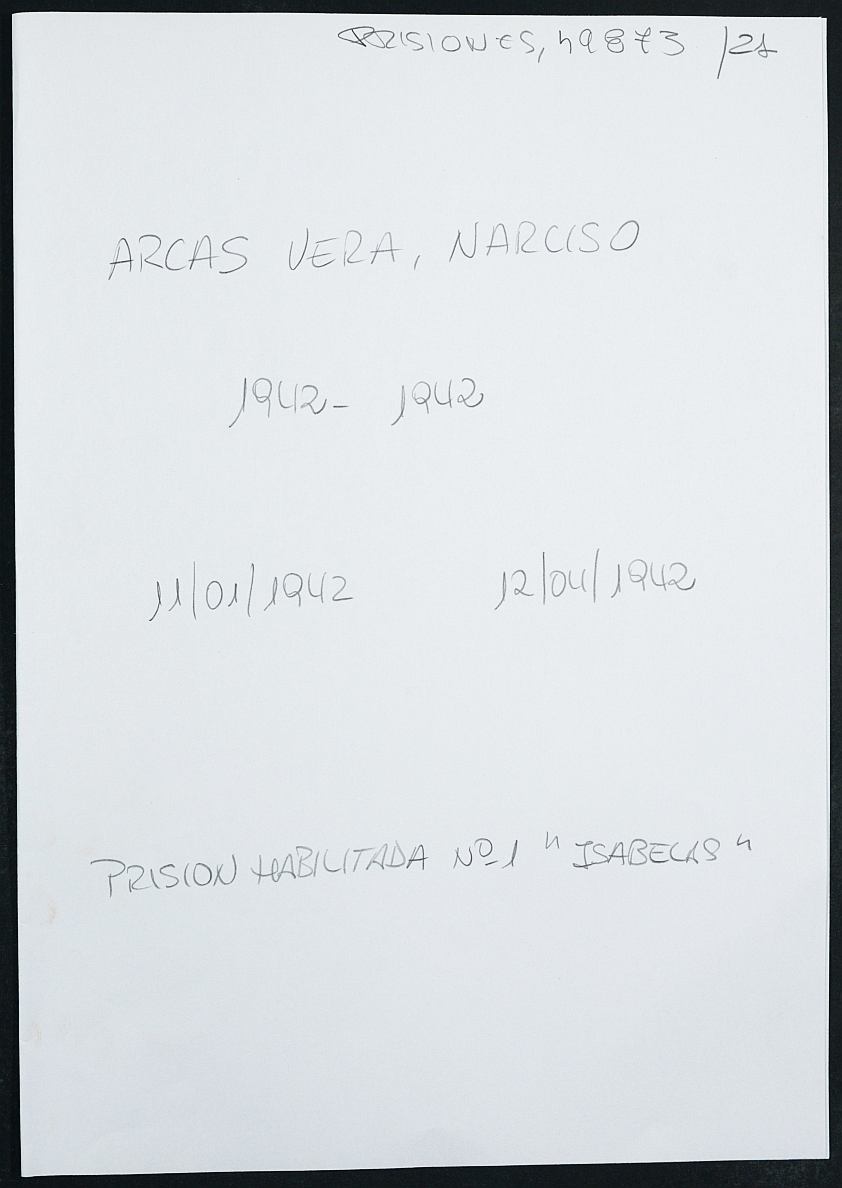 PRISIONES, 49873 /21
ARCAS VERA, NARCISO
1942- 1942
11/01/1942 12/04/1942
PRISION HABILITADA Nº 1 " ISABELAS "